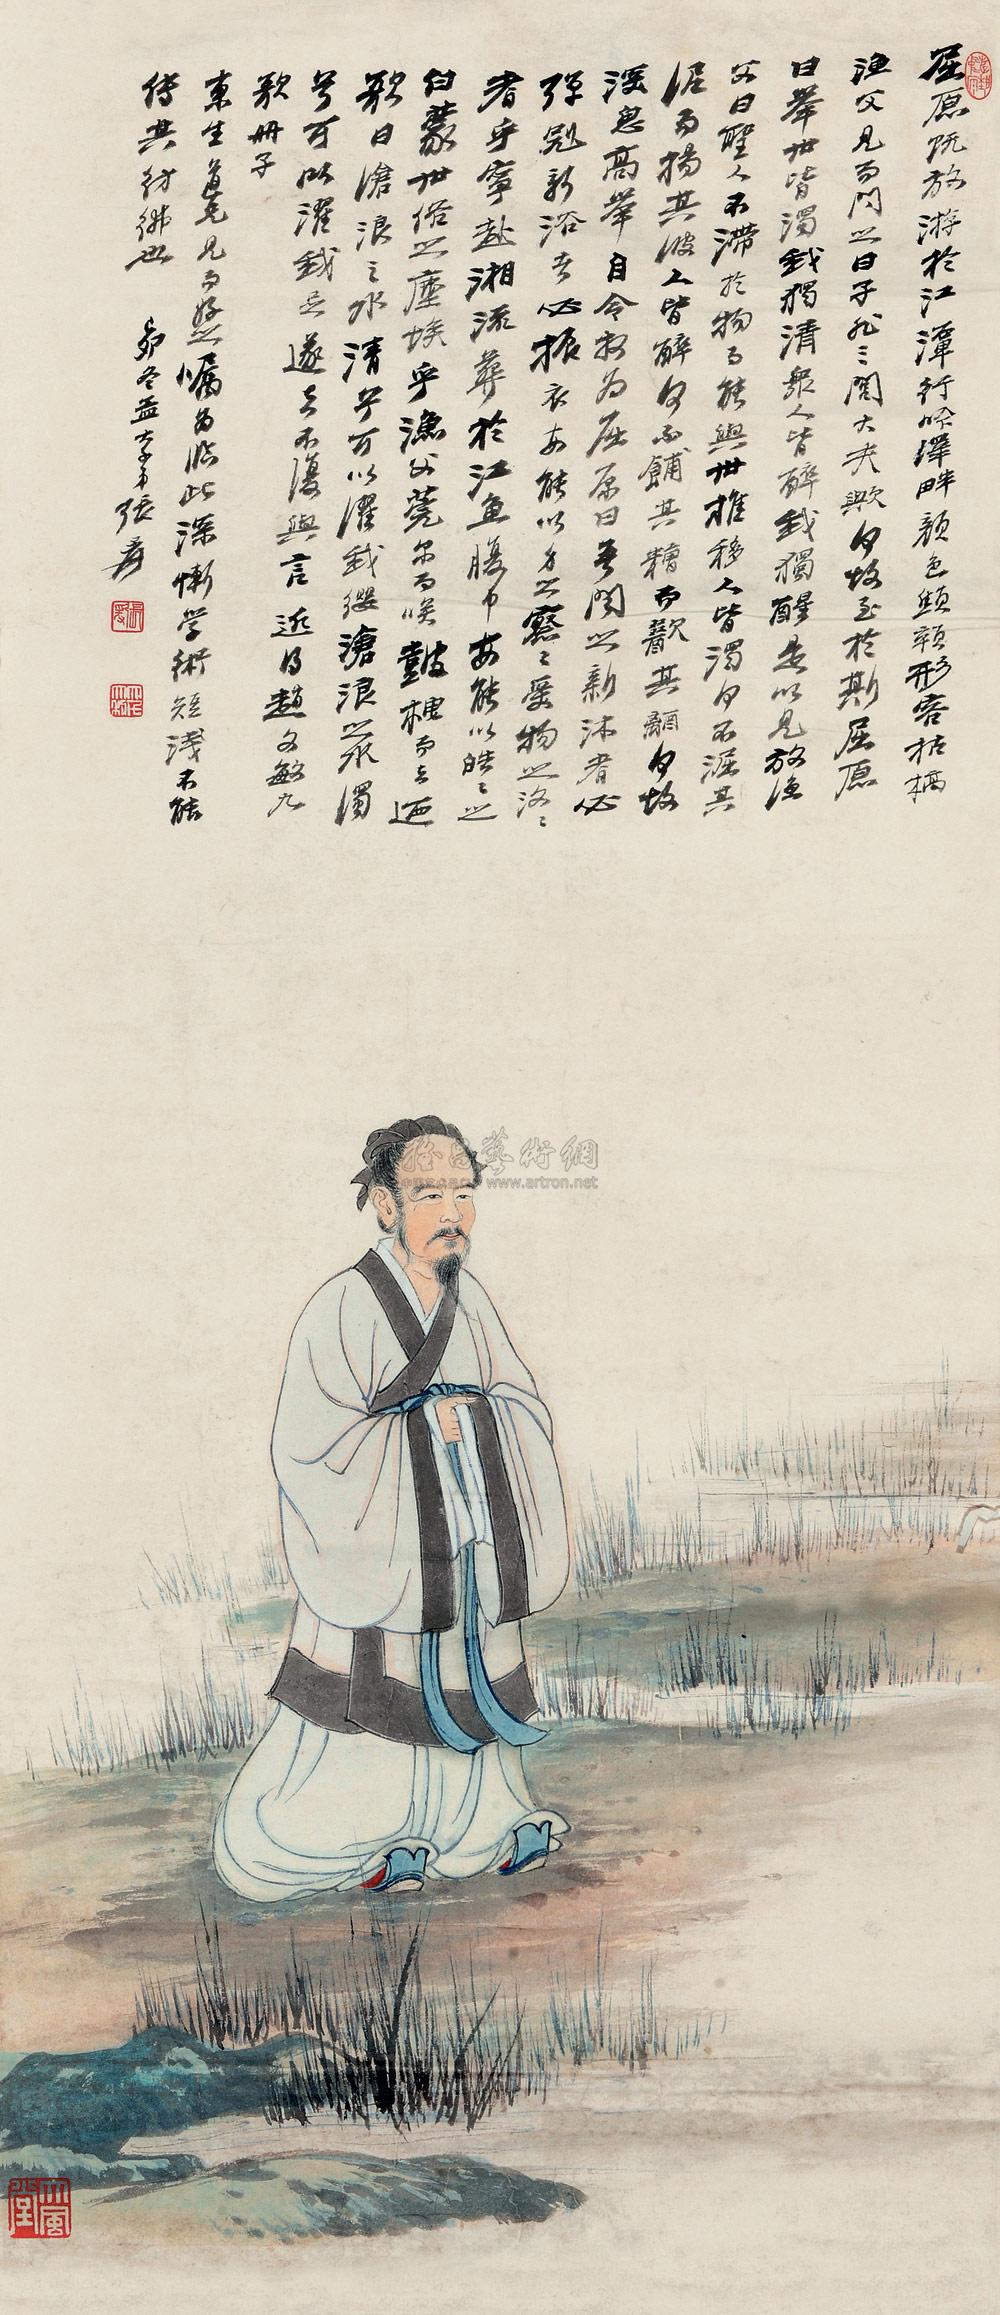 屈原既放游於江潭行吟澤畔顏色顦顇形容枯槁
漁父見而問之曰子非三閭大夫歟何故至於斯屈原
曰舉世皆濁我獨清眾人皆醉我獨醒是以見放漁
父曰聖人不滯於物而能與世推移人皆濁何不淈其
泥而揚其波人皆醉何不餔其糟而歠其醨何故
深思高舉自令放為屈原曰吾聞之新沐者必
彈冠新浴者必振衣安能以身之察〻受物之汶〻
者乎寧赴湘流葬於江魚腹中安能以皓〻之
白蒙世俗之塵埃乎漁父莞爾而笑鼓枻而去廼
歌曰滄浪之水清兮可以濯我纓滄浪之水濁
兮可以濯我足遂去不復與言 近得趙文敏九
歌冊子
東生道兄見而好之囑為臨此深慚學術短淺不能
傳其彷彿也 卯冬孟 弟張爰
大風堂
雅昌藝術網
www.artron.net